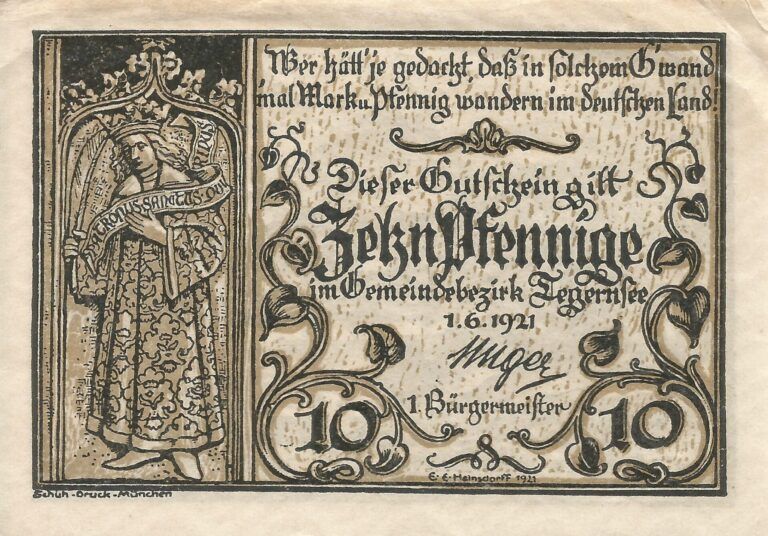 Wer hätt' je gedacht, daß in solchem G'wand
'mal Mark u. Pfennig wandern im deutschen Land!
PATRONUS SANCTUS QUI
Dieser Gutschein gilt
Zehn Pfennige
im Gemeindebezirk Tegernsee
1.6.1921
1. Bürgermeister
10
10
E. E. Heinsdorff 1921
Schuh-Druck-München